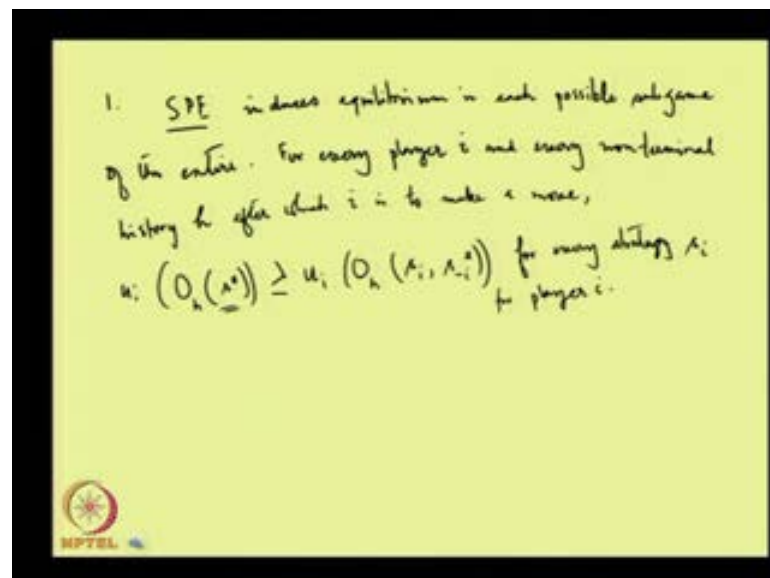 1. SPE induces equilibrium in each possible subgame
of the entire. For every player i and every nonterminal
history h after which i is to make a move,
u_i (O_h(s*)) ≥ u_i (O_h(s_i, s_-i*)) for every strategy s_i
for player i.
NPTEL